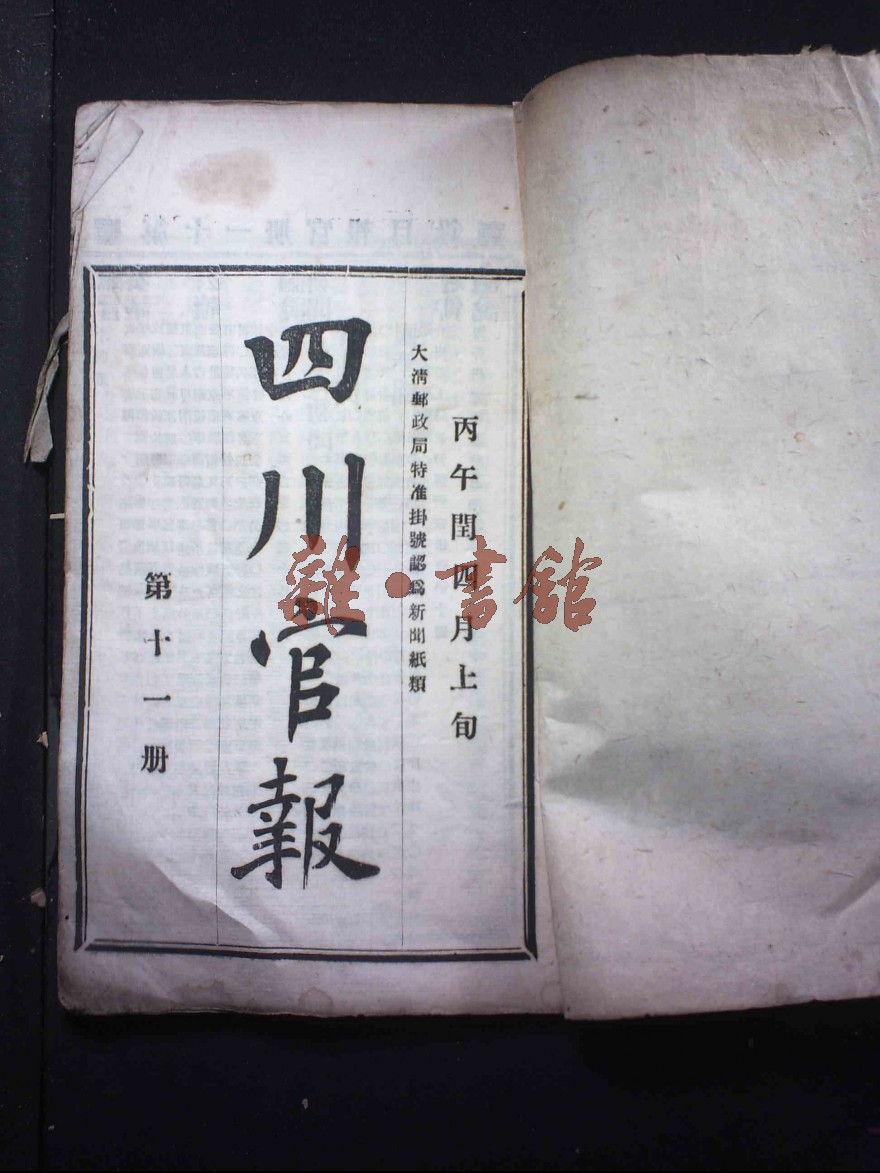 丙午閏四月上旬
大淸郵政局特准掛號認爲新聞紙類
四川官報
第十一册
雜·書舘